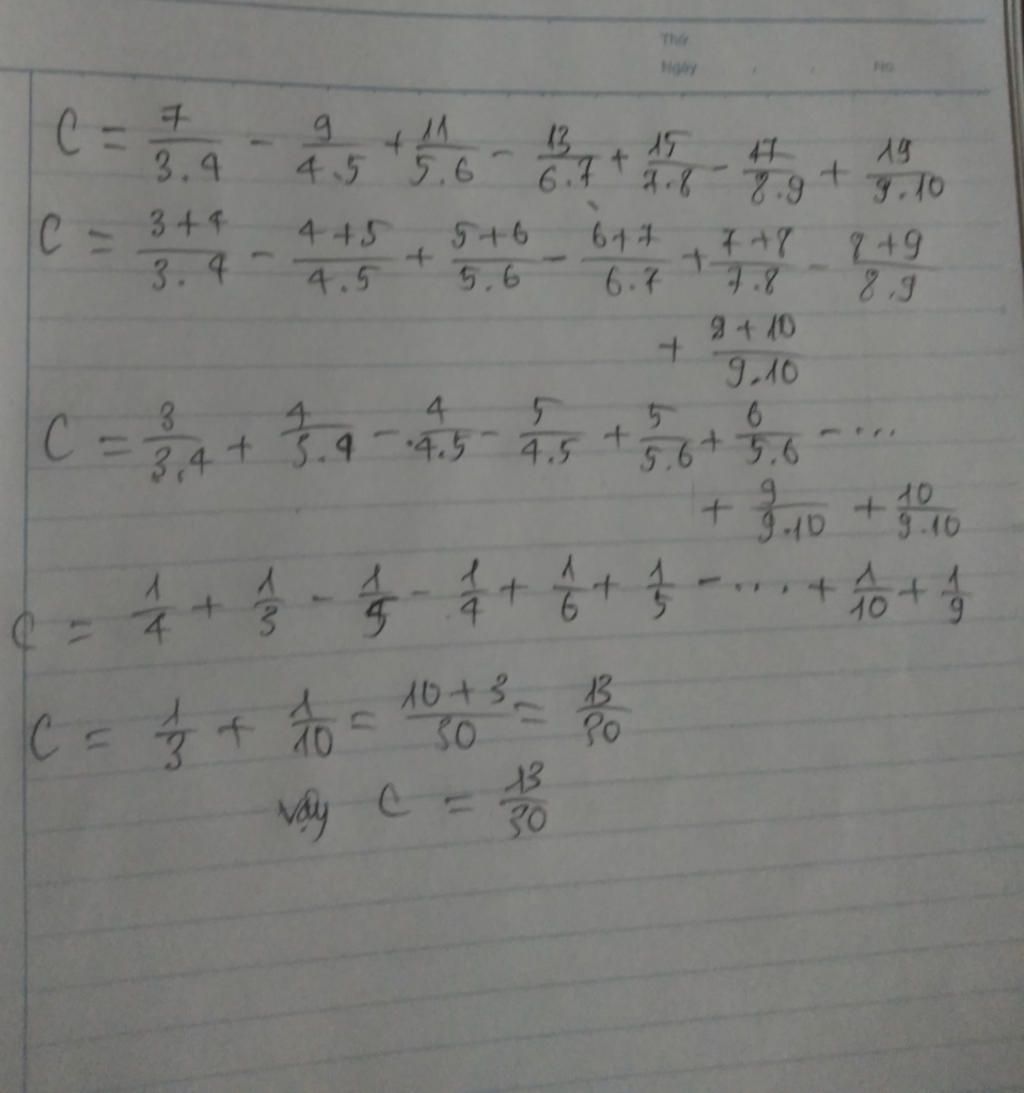 Thứ
Ngày . . No
C = 7/3.4 - 9/4.5 + 11/5.6 - 13/6.7 + 15/7.8 - 17/8.9 + 19/9.10
C = 3+4/3.4 - 4+5/4.5 + 5+6/5.6 - 6+7/6.7 + 7+8/7.8 - 8+9/8.9
+ 9+10/9.10
C = 3/3.4 + 4/3.4 - 4/4.5 - 5/4.5 + 5/5.6 + 6/5.6 - ...
+ 9/9.10 + 10/9.10
C = 1/4 + 1/3 - 1/5 - 1/4 + 1/6 + 1/5 - ... + 1/10 + 1/9
C = 1/3 + 1/10 = 10+3/30 = 13/30
vậy C = 13/30